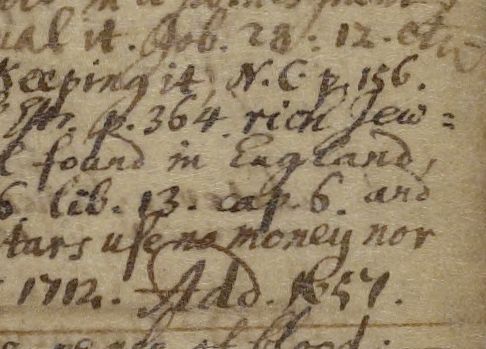 ual it. Job. 28: 12. etc
Keeping it, N. C. p. 156.
p. 364 rich Jew=
l found in England,
6 lib. 13. cap. 6. and
tars use no money nor
1712. Add. 1657.
of blood: